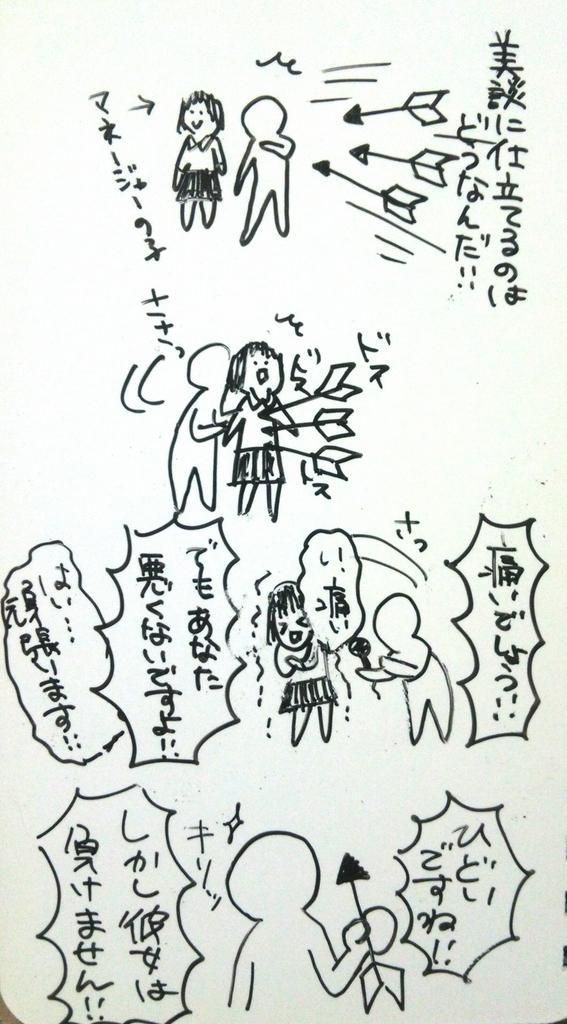 美談に仕立てるのは
どうなんだ!!
マネージャーの子
ささっ
ドス
ドス
ドス
さっ
痛いでしょう!!
い、痛い
でもあなた
悪くないですよ!!
はい…
頑張います…
ひどい
ですね!!
キリッ
しかし彼女は
負けません!!